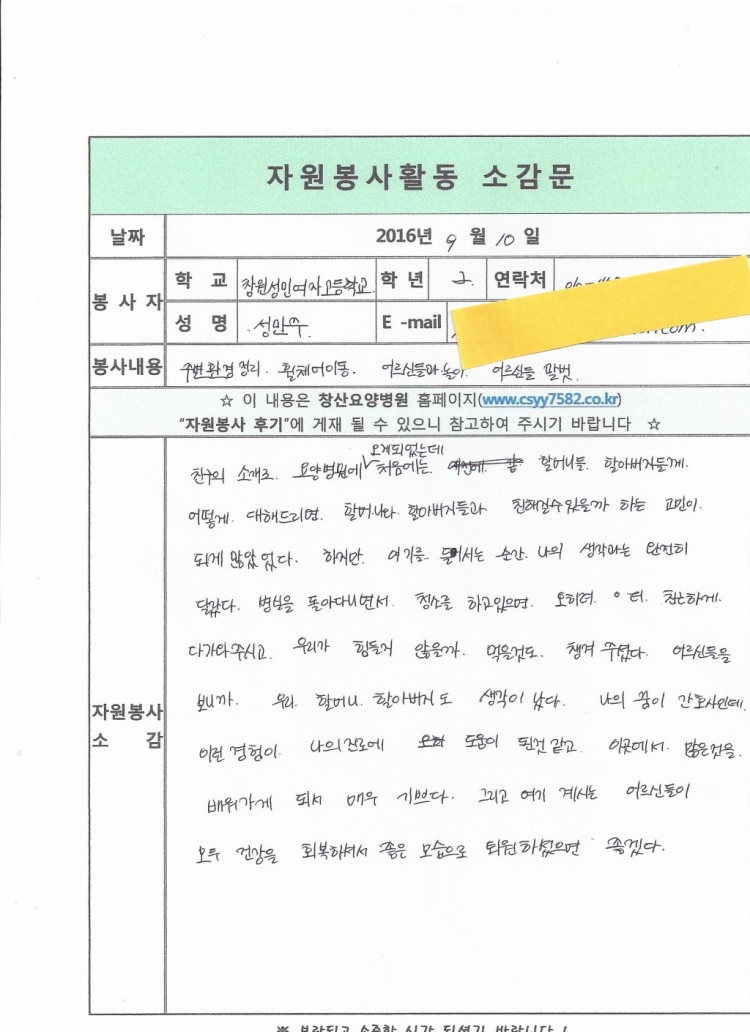 자원봉사활동 소감문
날짜 2016년 9 월 10 일
봉사자 학 교 창원성민여자고등학교 학 년 2. 연락처
성 명 성만수 E -mail com.
봉사내용 주변환경 정리. 휠체어이동. 어르신들과 놀이. 어르신들 말벗.
☆ 이 내용은 창산요양병원 홈페이지(www.csyy7582.co.kr)
"자원봉사 후기"에 게재 될 수 있으니 참고하여 주시기 바랍니다 ☆
자원봉사 소 감
친구의 소개로. 요양병원에 오게되었는데 처음에는. 할머니들. 할아버지들께.
어떻게. 대해드리면. 할머니와 할아버지들과 친해질수있을까 하는 고민이.
되게 많았었다. 하지만. 여기를 들어서는 순간. 나의 생각과는 완전히
달랐다. 병실을 돌아다니면서. 청소를 하고있으면. 오히려. 더. 친근하게.
다가와주시고. 우리가 힘들지 않을까. 먹을것도. 챙겨 주셨다. 어르신들을
보니까. 우리. 할머니. 할아버지도 생각이 났다. 나의 꿈이 간호사인데.
이런 경험이. 나의진로에 도움이 된것 같고. 이곳에서. 많은것을.
배워가게 되서 매우 기쁘다. 그리고 여기 계시는 어르신들이
모두 건강을 회복하셔서 좋은 모습으로 퇴원하셨으면 좋겠다.